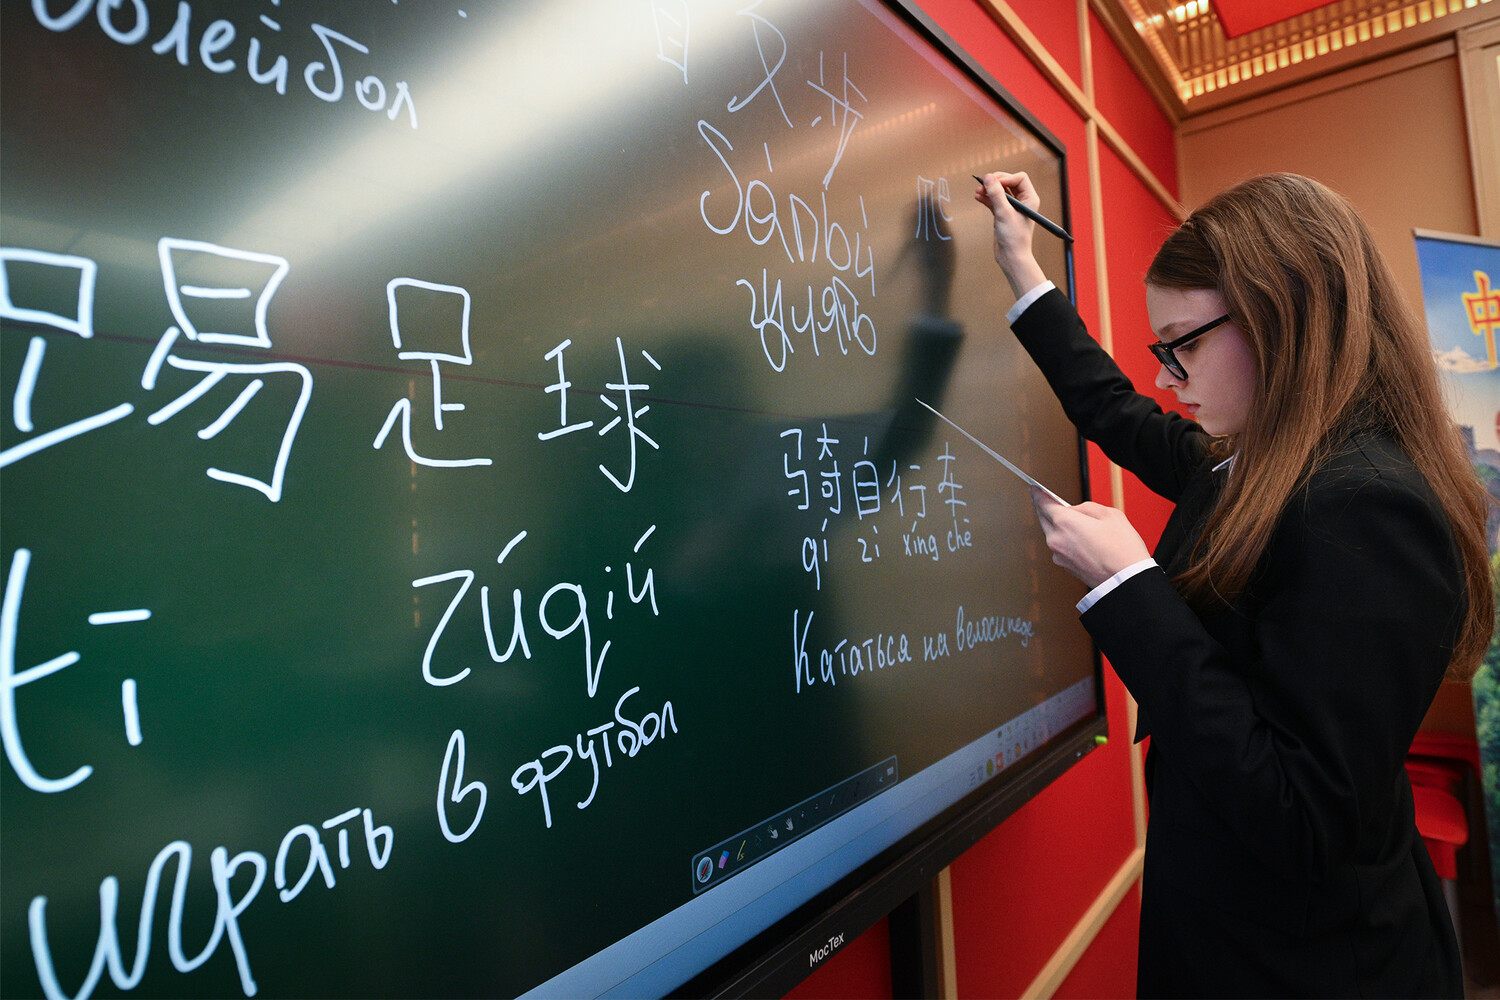 волейбол
踢足球
tī zúqiú
играть в футбол
гулять
пе
骑自行车
qí zì xíng chē
Кататься на велосипеде
МосТех
中